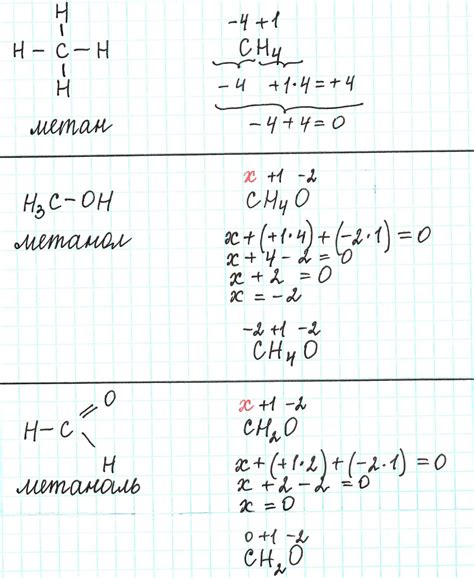 H
H – C – H
H
метан
-4 +1
CH₄
-4 +1·4=+4
-4+4=0
H₃C–OH
метанол
x +1 -2
CH₄O
x+(+1·4)+(-2·1)=0
x+4-2=0
x+2=0
x=-2
-2 +1 -2
CH₄O
O
H–C
H
метаналь
x +1 -2
CH₂O
x+(+1·2)+(-2·1)=0
x+2-2=0
x=0
0 +1 -2
CH₂O